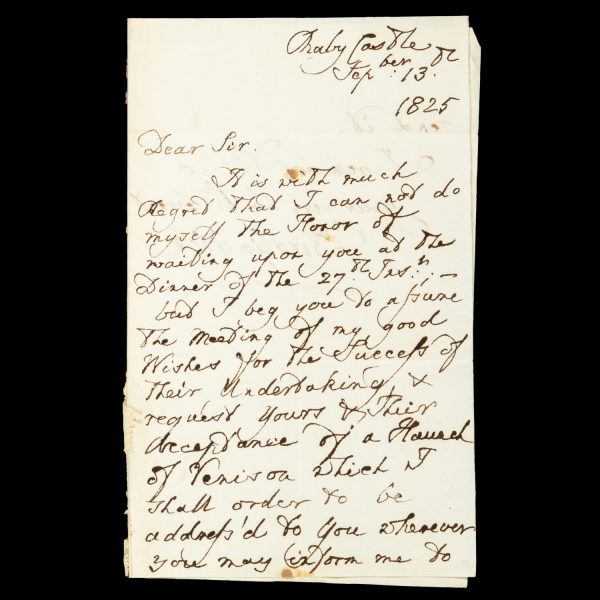 Raby Castle
Sepber: 13th
1825
Dear Sir.
It is with much
Regret that I can not do
myself the Honor of
waiting upon you at the
Dinner of the 27th. Insn: —
but I beg you to assure
the Meeting of my good
Wishes for the Success of
Their Undertaking, &
request Yours & Their
Acceptance of a Haunch
of Venison which I
shall order to be
address'd to You wherever
you may inform me to